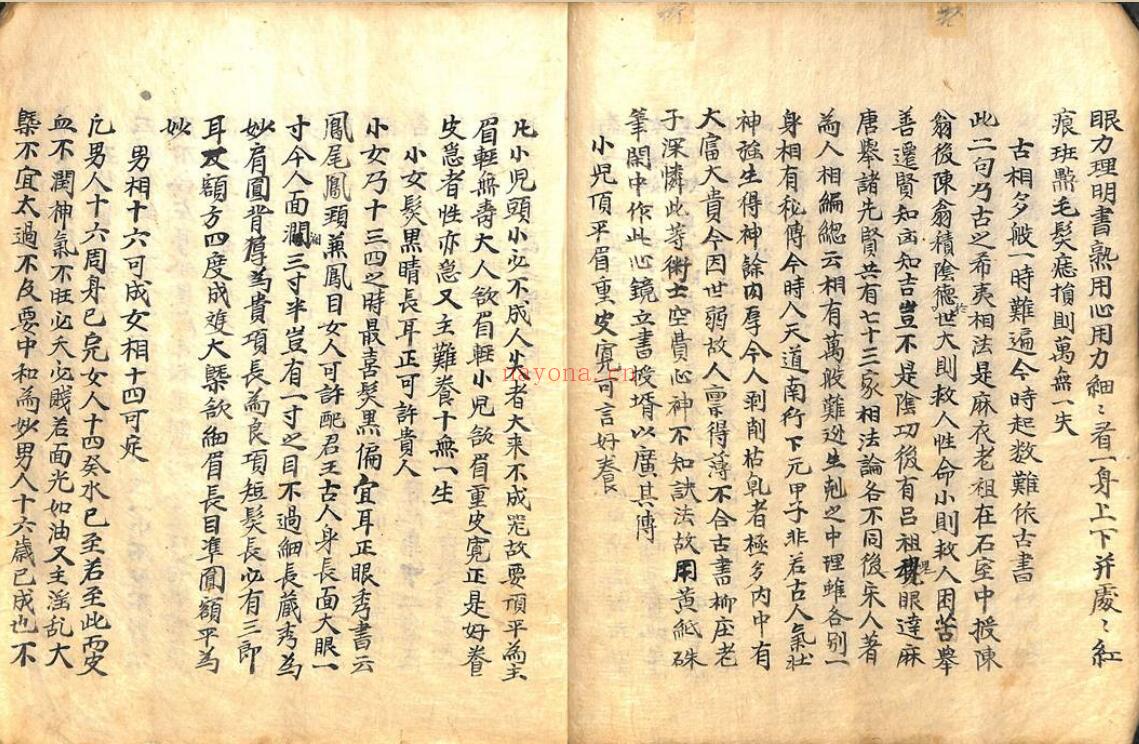 眼力理明書熟用心用力細〻看一身上下并處〻紅
痕班㸃毛髮痣損則萬無一失
古相多般一時難遍今時起数難依古書
此二句乃古之希夷相法是麻衣老祖在石室中授陳
翁後陳翁積陰德於世大則救人性命小則救人困苦舉
善遷賢知凶知吉豈不是陰功後有呂祖眼達麻
唐舉諸先賢共有七十三家相法論各不同後宋人著
為人相編總云相有萬般難逃生剋之中理雖各別一
身相有秘傳今時人天道南行下元甲子非若古人氣壯
神強生得神餘肉厚今人剥削枯乹者極多内中有
大富大貴今因世弱故人禀得薄不合古書柳庄老
子深憐此等術士空費心神不知訣法故用黄紙硃
筆閑中作此心鏡立書授壻以廣其傳
小児頂平眉重皮寛可言好養
凡小児頭小必不成人小者大来不成児故要頂平為主
眉輕無壽大人欲眉輕小児欲眉重皮寛正是好養
皮急者性亦急又主難養十無一生
小女髮黒睛長耳正可許貴人
小女乃十三四之時最喜髮黒偏宜耳正眼秀書云
鳳尾鳳頸兼鳳目女人可許配君王古人身長面大眼一
寸今人面濶三寸半豈有一寸之目不過細長藏秀為
妙肩圓背厚為貴項長為良項短髮長必有三郎
耳反額方四度成雙大槩欲細眉長目準圓額平為
妙
男相十六可成女相十四可定
凡男人十六周身已完女人十四癸水已至若至此而皮
血不潤神氣不旺必夭必賤若面光如油又主滛乱大
槩不宜太過不及要中和為妙男人十六歳已成也不
nayona.cn